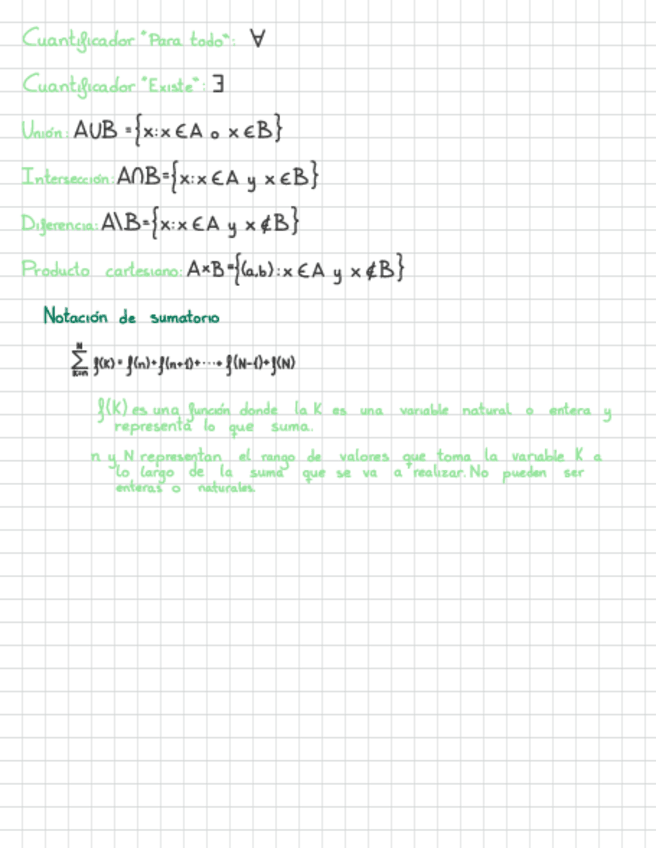 Cuantificador "Para todo": ∀
Cuantificador "Existe": ∃
Unión: A∪B = {x: x ∈ A o x ∈ B}
Intersección: A∩B = {x: x ∈ A y x ∈ B}
Diferencia: A\B = {x: x ∈ A y x ∉ B}
Producto cartesiano: A×B = {(a,b): x ∈ A y x ∉ B}
Notación de sumatorio
∑_{k=n}^{N} f(K) = f(n)+f(n+1)+····+ f(N-1)+f(N)
f(K) es una función donde la K es una variable natural o entera y
representa lo que suma.
n y N representan el rango de valores que toma la variable K a
lo largo de la suma que se va a realizar. No pueden ser
enteras o naturales.